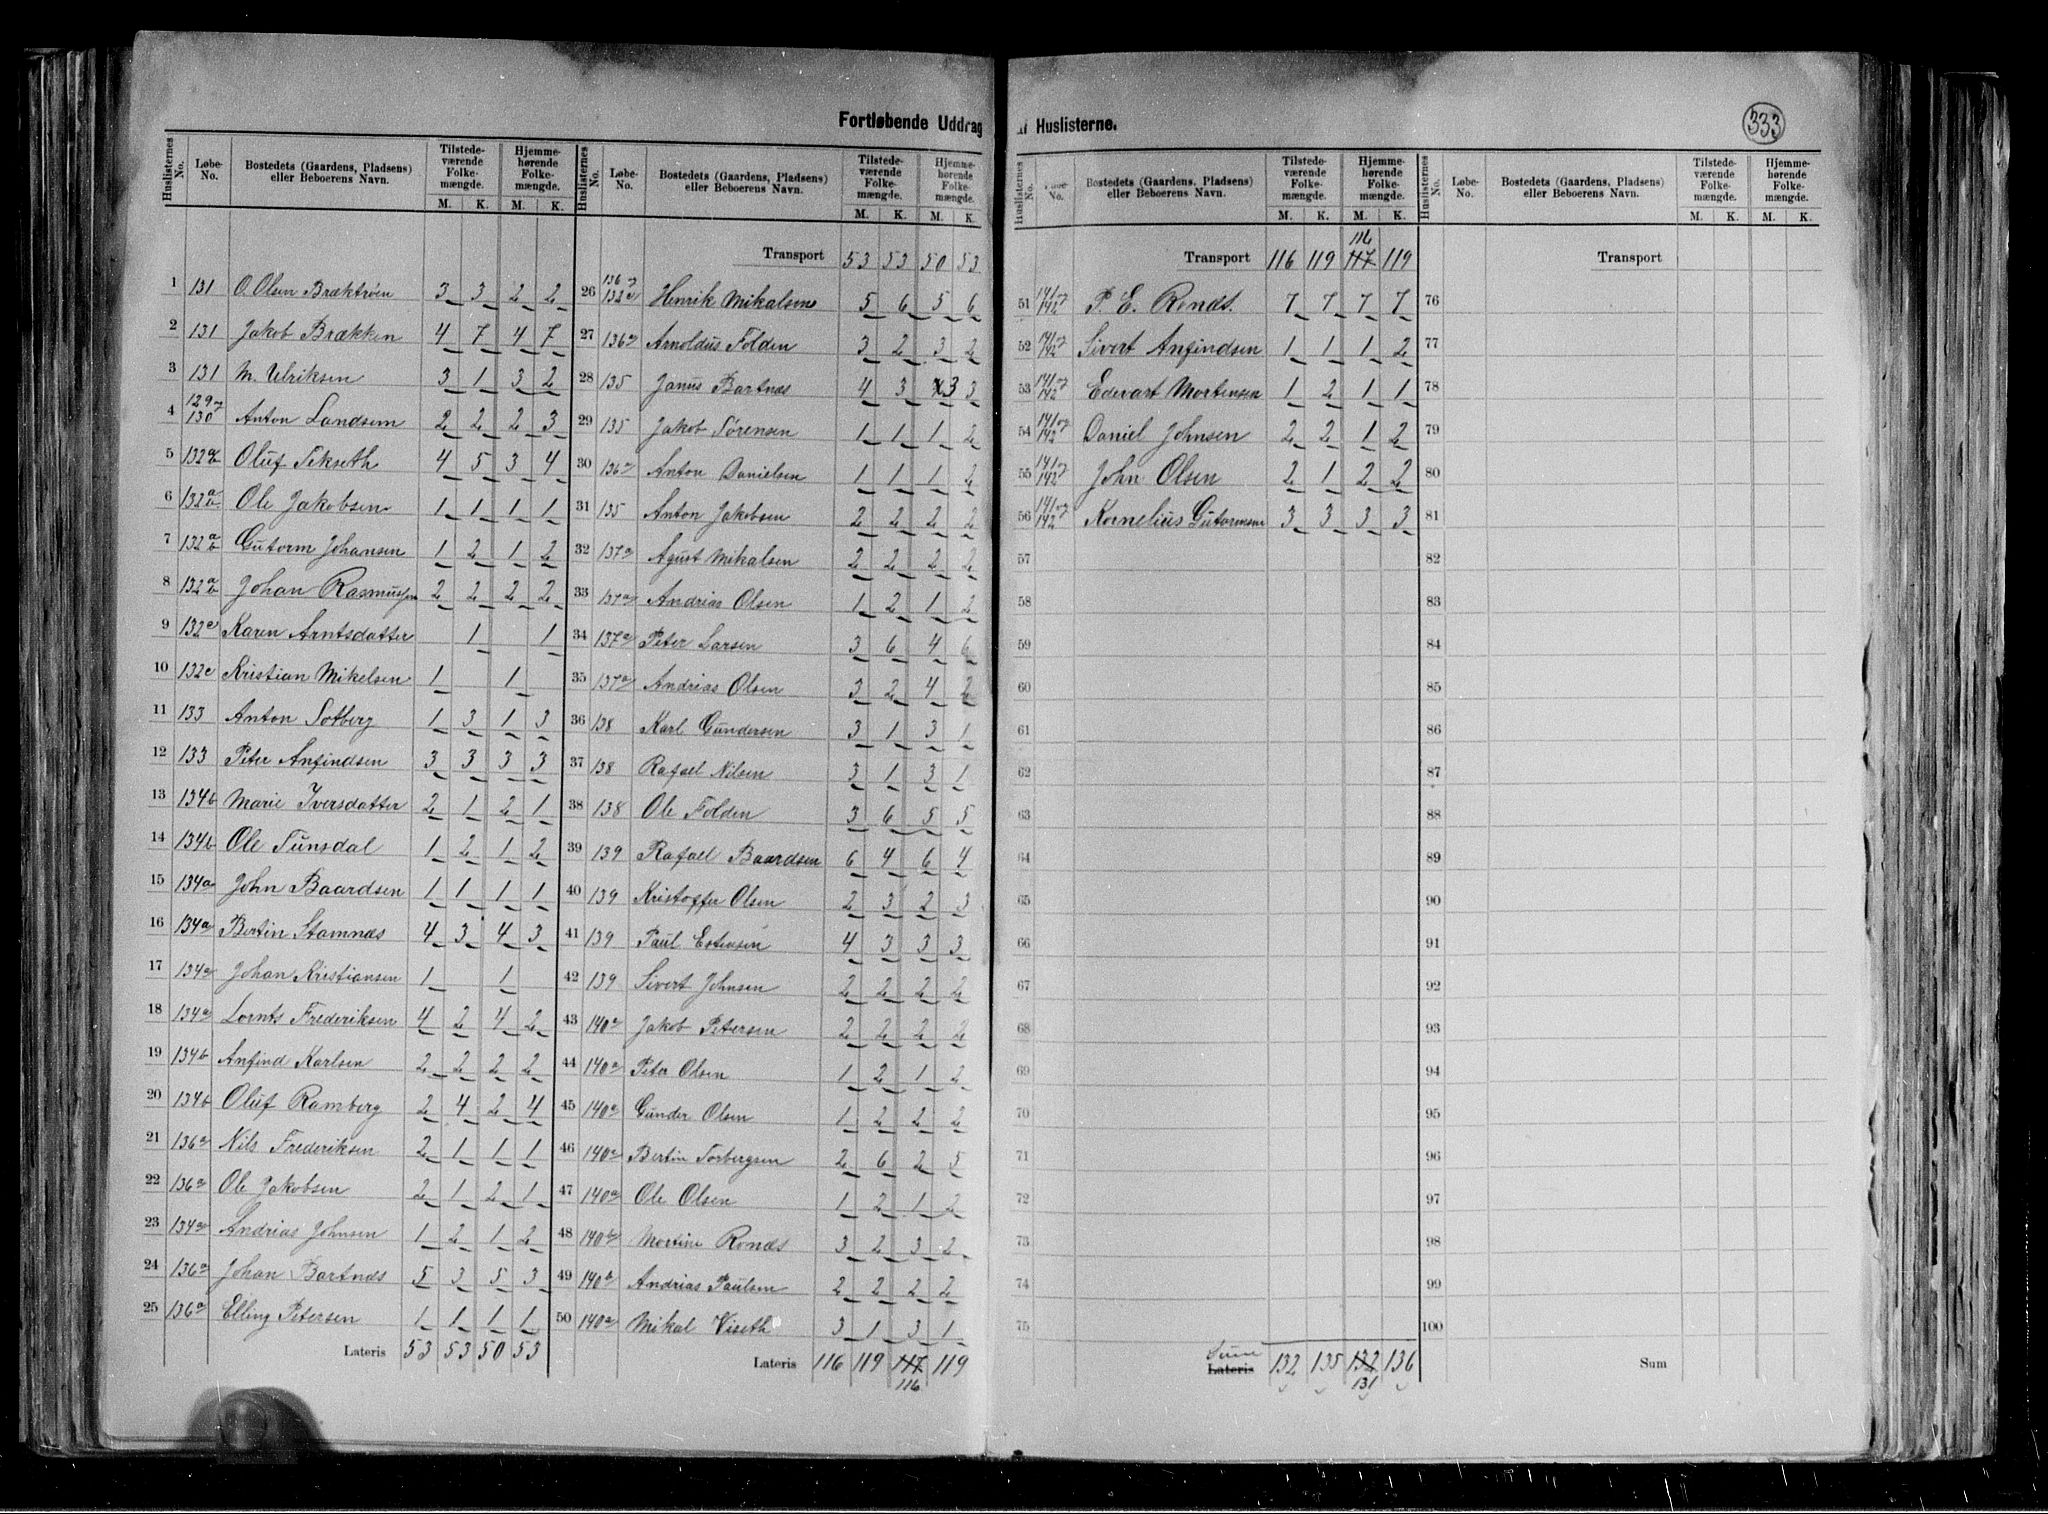 Fortløbende Uddrag af Huslisterne.
333
Huslisternes No. Løbe-No. Bostedets (Gaardens, Pladsens) eller Beboerens Navn. Tilstedeværende Folkemængde. M. K. Hjemmehørende Folkemængde. M. K.
1 131 O. Olsen Bræktrøen 3 3 2 2
2 131 Jakob Brækken 4 7 4 7
3 131 M. Ulriksen 3 1 3 2
4 129 130 Anton Landsem 2 2 2 3
5 132 Oluf Sekseth 4 5 3 4
6 132 a b Ole Jakobsen 1 1 1 1
7 132 a b Gutorm Johansen 1 2 1 2
8 132 a b Johan Rasmussen 2 2 2 2
9 132c Karen Arntsdatter 1 1
10 132c Kristian Mikelsen 1 1
11 133 Anton Solberg 1 3 1 3
12 133 Peter Anfindsen 3 3 3 3
13 134b Marie Iversdatter 2 1 2 1
14 134b Ole Tunsdal 1 2 1 2
15 134a John Baardsen 1 1 1 1
16 134a Bertin Stamnæs 4 3 4 3
17 134a Johan Kristiansen 1 1
18 134a Lornts Frederiksen 4 2 4 2
19 134b Anfind Karlsen 2 2 2 2
20 134b Oluf Ramberg 2 4 2 4
21 136a Nils Frederiksen 2 1 1 1
22 136a Ole Jakobsen 2 1 2 1
23 134a Andrias Johnsen 1 2 1 2
24 136a Johan Bartnæs 5 3 5 3
25 136a Elling Petersen 1 1 1 1
Lateris 53 53 50 53
Huslisternes No. Løbe-No. Bostedets (Gaardens, Pladsens) eller Beboerens Navn. Tilstedeværende Folkemængde. M. K. Hjemmehørende Folkemængde. M. K.
Transport 53 53 50 53
26 136 132c Henrik Mikalsen 5 6 5 6
27 136a Arnoldus Folden 3 2 3 2
28 135 Janus Bartnæs 4 3 3 3
29 135 Jakob Sørensen 1 1 1 2
30 136a Anton Danielsen 1 1 1 2
31 135 Anton Jakobsen 2 2 2 2
32 137a Agust Mikalsen 2 2 2 2
33 137a Andrias Olsen 1 2 1 2
34 137a Peter Larsen 3 6 4 6
35 137a Andrias Olsen 3 2 4 2
36 138 Karl Gundersen 3 1 3 1
37 138 Rafael Nilsen 3 1 3 1
38 138 Ole Folden 3 6 5 5
39 139 Rafael Baardsen 6 4 6 4
40 139 Kristoffer Olsen 2 3 2 3
41 139 Paul Estensen 4 3 3 3
42 139 Sivert Johnsen 2 2 2 2
43 140a Jakob Petersen 2 2 2 2
44 140a Peter Olsen 1 2 1 2
45 140a Gunder Olsen 1 2 2 2
46 140a Bertin Torbergsen 2 6 2 5
47 140a Ole Olsen 1 2 1 2
48 140b Mortine Ronæs 3 2 3 2
49 140b Andrias Paulsen 2 2 2 2
50 140a Mikal Viseth 3 1 3 1
Lateris 116 119 117 119
116
Huslisternes No. Løbe-No. Bostedets (Gaardens, Pladsens) eller Beboerens Navn. Tilstedeværende Folkemængde. M. K. Hjemmehørende Folkemængde. M. K.
116
Transport 116 119 117 119
51 141 142 P. E. Rends. 7 7 7 7
52 141 142 Sivert Anfindsen 1 1 1 2
53 141 142 Edevart Mortensen 1 2 1 1
54 141 142 Daniel Johnsen 2 2 1 2
55 141 142 John Olsen 2 1 2 2
56 141 142 Kornelius Gutormsen 3 3 3 3
57
58
59
60
61
62
63
64
65
66
67
68
69
70
71
72
73
74
75
Sum
Lateris 132 135 132 136
131
Huslisternes No. Løbe-No. Bostedets (Gaardens, Pladsens) eller Beboerens Navn. Tilstedeværende Folkemængde. M. K. Hjemmehørende Folkemængde. M. K.
Transport
76
77
78
79
80
81
82
83
84
85
86
87
88
89
90
91
92
93
94
95
96
97
98
99
100
Sum